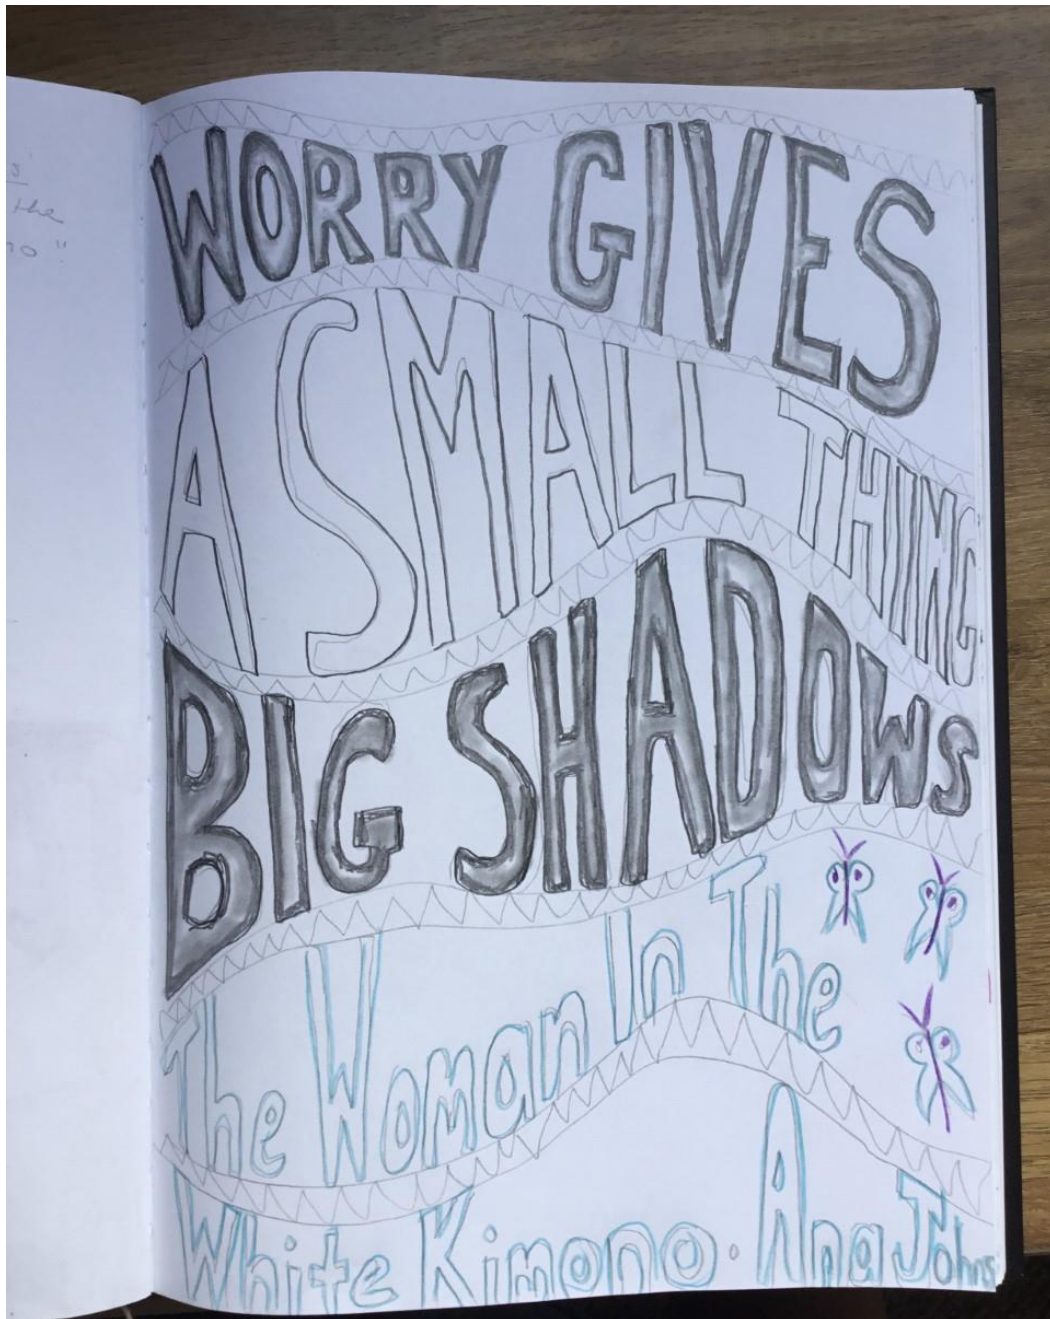 the
WORRY GIVES
A SMALL THING
BIG SHADOWS
The Woman In The
White Kimono. Ana Johns